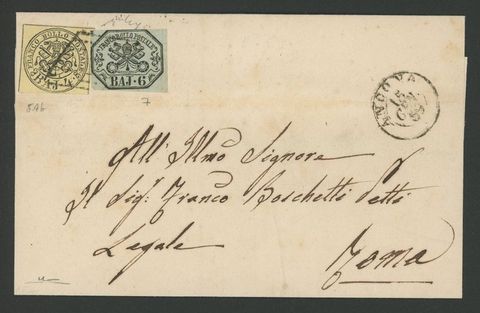 FRANCO BOLLO POSTALE
BAJ. 4
FRANCO BOLLO POSTALE
BAJ-6
8Ab
7
ANCONA
15
GEN
59
All' Illmo Signore
Il Sigr Franco Boschetti
Legale
Roma